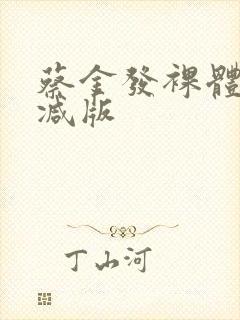 蔡金發裸體
减版
丁山河